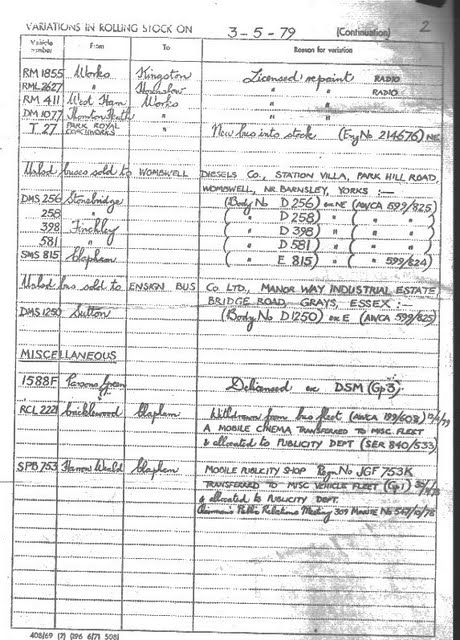 VARIATIONS IN ROLLING STOCK ON 3-5-79 (Continuation) 2
Vehicle number From To Reason for variation
RM 1855 Works Kingston Licensed repaint RADIO
RML 2627 " Hounslow " " RADIO
RM 411 West Ham Works " "
DM 1077 Thornton Heath " " "
T 27 PARK ROYAL COACHWORKS " New bus into stock (Eng No 214676) NE
Unlicd buses sold to WOMBWELL DIESELS Co., STATION VILLA, PARK HILL ROAD,
WOMBWELL, NR. BARNSLEY, YORKS :—
DMS 256 Stonebridge (Body No D 256) ex NE (AWCA 599/825)
258 " ( " D 258) " ( " )
398 Finchley ( " D 398) " ( " )
581 " ( " D 581) " ( " )
SMS 815 Clapham ( " E 815) " ( " 599/824)
Unlicd bus sold to ENSIGN BUS Co LTD., MANOR WAY INDUSTRIAL ESTATE
BRIDGE ROAD, GRAYS, ESSEX :—
DMS 1250 Sutton (Body No D1250) ex E (AWCA 599/825)
MISCELLANEOUS
1588F Parsons Green Delicensed ex DSM (Gp 3)
RCL 2221 Cricklewood Clapham Withdrawn from bus fleet (AWCA 599/608)
A MOBILE CINEMA TRANSFERRED TO MISC. FLEET
& allocated to PUBLICITY DEPT (SER 840/533)
SPB 753 Harrow Weald Clapham MOBILE PUBLICITY SHOP Regn No JGF 753K
TRANSFERRED TO MISC VEHICLE FLEET (Gp 1)
& allocated to PUBLICITY DEPT.
Chairman's Public Relations Meeting 309 MINUTE No
408/69 (7) (396 6/71 508)